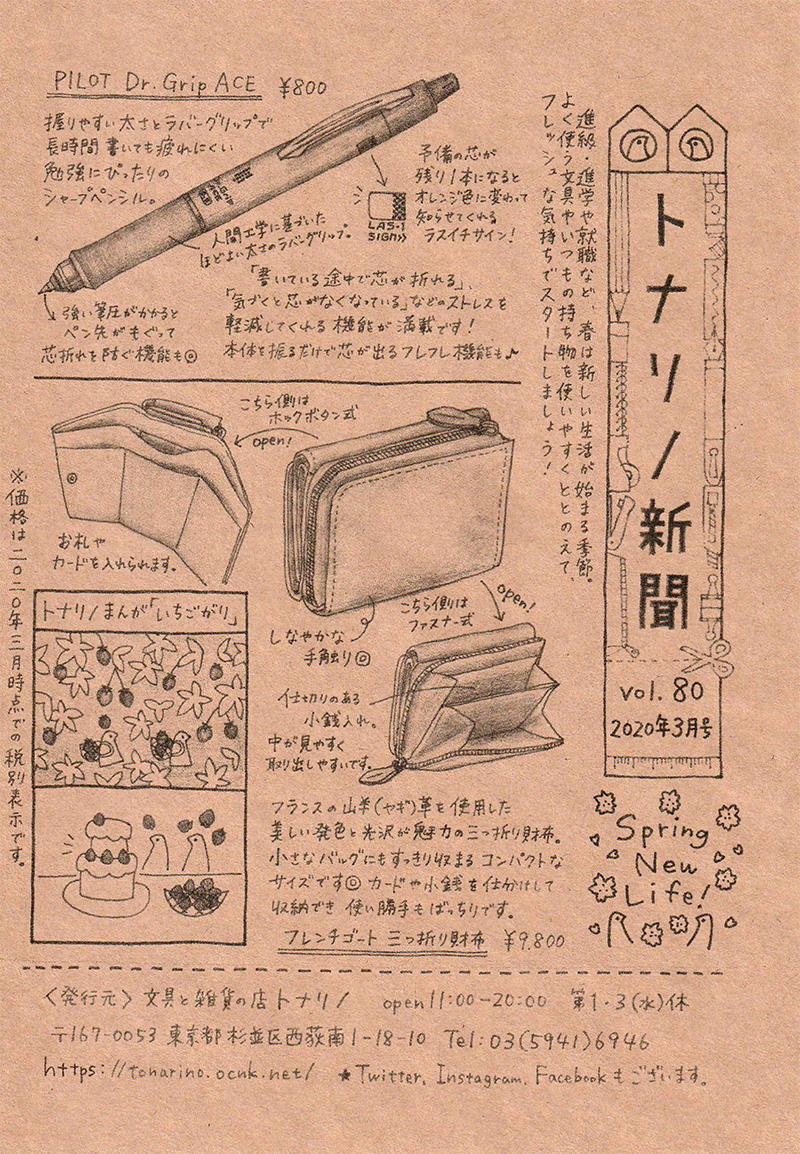 トナリノ新聞
vol. 80
2020年3月号
進級・進学や就職など、春は新しい生活が始まる季節。
よく使う文具やいつもの持ち物を使いやすくととのえて、
フレッシュな気持ちでスタートしましょう！
PILOT Dr. Grip ACE ¥800
握りやすい太さとラバーグリップで
長時間書いても疲れにくい
勉強にぴったりの
シャープペンシル。
予備の芯が
残り1本になると
オレンジ色に変わって
知らせてくれる
ラスイチサイン！
LAS-1
SIGN>>
人間工学に基づいた
ほどよい太さのラバーグリップ。
強い筆圧がかかると
ペン先がもぐって
芯折れを防ぐ機能も◎
「書いている途中で芯が折れる」、
「気づくと芯がなくなっている」などのストレスを
軽減してくれる機能が満載です！
本体を振るだけで芯が出るフレフレ機能も♪
こちら側は
ホックボタン式
open!
お札や
カードを入れられます。
しなやかな
手触り◎
こちら側は
ファスナー式
open!
仕切りのある
小銭入れ。
中が見やすく
取り出しやすいです。
フランスの山羊(ヤギ)革を使用した
美しい発色と光沢が魅力の三つ折り財布。
小さなバッグにもすっきり収まるコンパクトな
サイズです◎ カードや小銭を仕分けして
収納でき 使い勝手もばっちりです。
フレンチゴート 三つ折り財布 ¥9.800
トナリノまんが「いちごがり」
※価格は二〇二〇年三月時点での税別表示です。
Spring
New
Life!
〈発行元〉文具と雑貨の店トナリノ open 11:00-20:00 第1・3(水)休
〒167-0053 東京都杉並区西荻南1-18-10 Tel:03(5941)6946
https://tonarino.ocnk.net/ ★Twitter, Instagram, Facebookもございます。